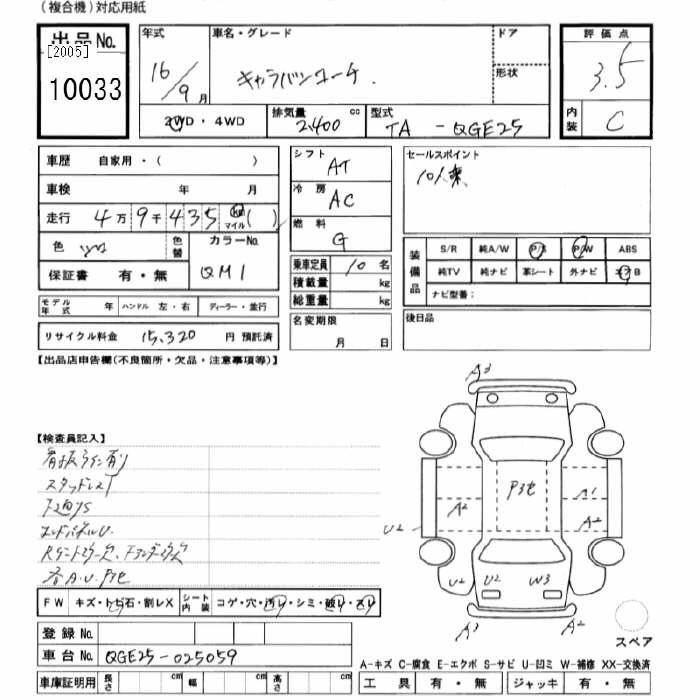 (複合機)対応用紙
出品No.
[2005]
10033
年式
16/9月
車名・グレード
キャラバンコーチ
ドア
形状
評価点
3.5
内装
C
2WD・4WD
排気量
2,400 cc
型式
TA-QGE25
車歴 自家用・( )
車検 年 月
走行 4万9千435 km マイル( )
色
シロ
色替
カラーNo.
QM1
保証書 有・無
モデル年式 年 ハンドル 左・右 ディーラー・並行
リサイクル料金 15,320 円 預託済
シフト
AT
冷房
AC
燃料
G
乗車定員 10名
積載量 kg
総重量 kg
名変期限
月 日
セールスポイント
10人乗
装備品
S/R 純A/W P/S P/W ABS
純TV 純ナビ 革シート 外ナビ エアB
ナビ型番:
後日品
【出品店申告欄(不良箇所・欠品・注意事項等)】
【検査員記入】
看板ライン有り
スタッドレスT
エンドパネルU.
各A.U.P他
FW キズ・トビ石・割レX
シート内装 コゲ・穴・汚レ・シミ・破レ・スレ
登録No.
車台No. QGE25-025059
車庫証明用 長さ cm 幅 cm 高さ cm
A3
P3他
A2
A1
A2
U2
U2
U2
W3
A2
A3
A2
スペア
A-キズ C-腐食 E-エクボ S-サビ U-凹ミ W-補修 XX-交換済
工具 有・無 ジャッキ 有・無